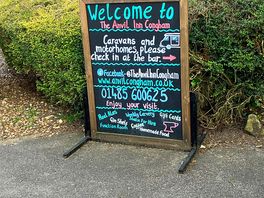 Welcome to
The Anvil Inn Congham
Caravans and
motorhomes, please
check in at the bar.
Facebook - @TheAnvilInnCongham
www.anvilcongham.co.uk
01485 600625
Enjoy your visit.
Real Ales
Weekly Carvery
Gift Cards
Gin Shelf
Function Room
Homemade Food